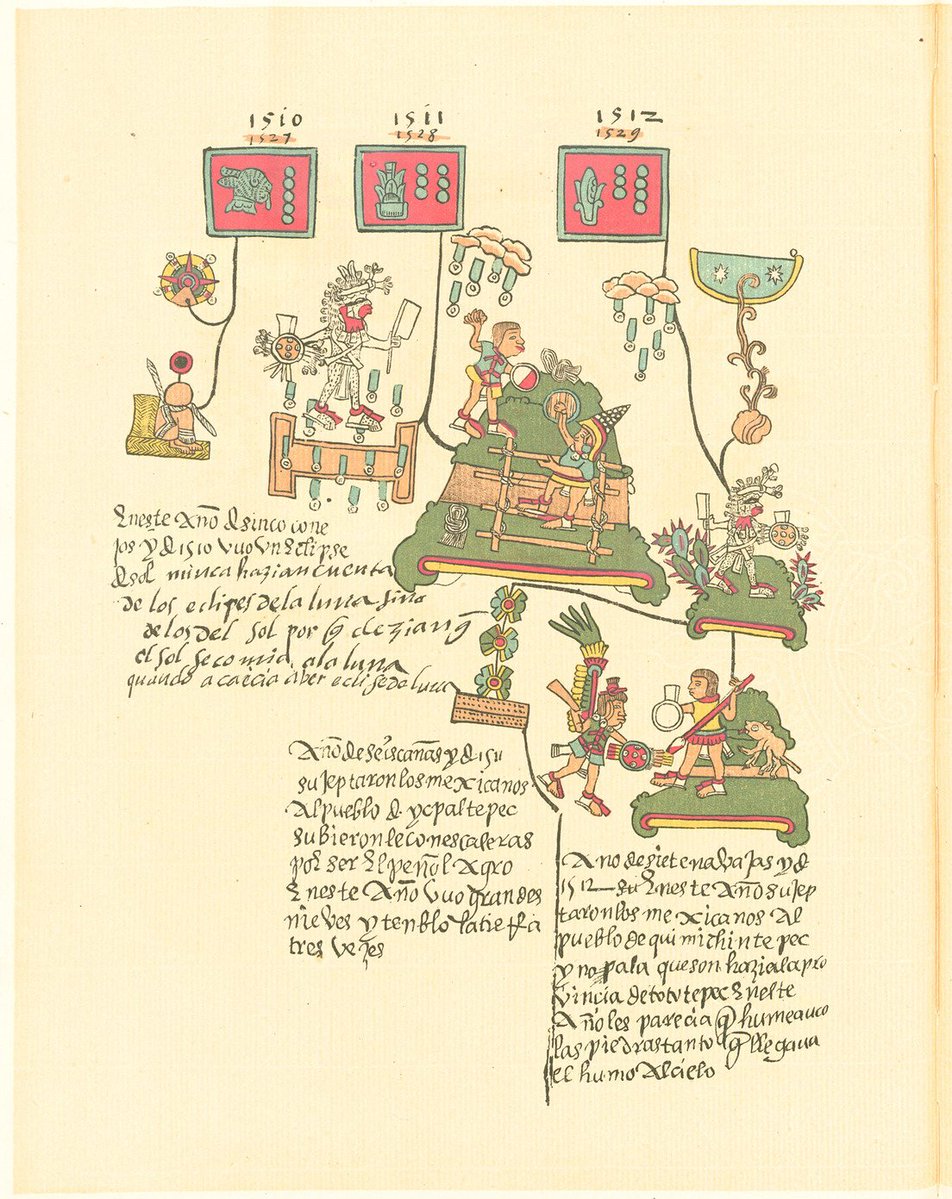 1510
1527
1511
1528
1512
1529
Eneste Año de sinco cone
jos y de 1510 vuo vn Eclipse
de sol nunca hazian cuenta
de los eclipes de la luna sino
de los del sol por q dezian q
el sol se comia a la luna
quando acaecia aber eclise de luna
Año de seis cañas y de 1511
sujeptaron los mexicanos
Al pueblo de ycpaltepec
subieronle con escaleras
por ser El peñol Agro
Eneste Año vuo grandes
nieves y tenblo la tierra
tres vezes
Ano de siete navajas y de
1512 Eneste Año sujep
taron los mexicanos Al
pueblo de quimichintepec
y nopala que son hazia la pro
vincia de tototepec Eneste
Año les parecia q humeauan
las piedras tanto q llegaua
el humo Al cielo